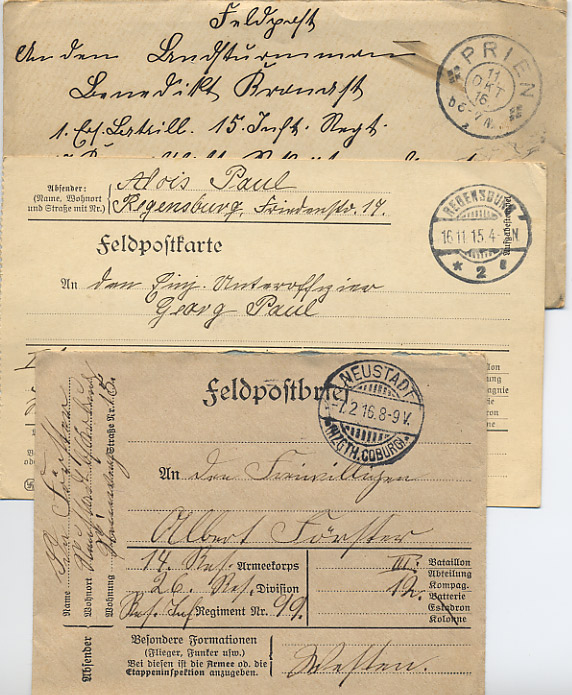 Feldpost
An den Landsturmmann
Benedikt Kronast
1. Ers. Bataill. 15. Inft. Regt.
PRIEN
11.
OKT
16.
6-7 N.
Absender:
(Name, Wohnort
und Straße mit Nr.)
Alois Paul
Regensburg, Friedenstr. 17.
REGENSBURG
16.11.15.4-
N
* 2
Aufgabestempel
Feldpostkarte
An den Einj. Unteroffizier
Georg Paul
Feldpostbrief
NEUSTADT
-7.2.16.8-9V.
(HZGTH. COBURG)
An den Freiwilligen
Albert Förster
14. Res. Armeekorps
26. Res. Division
Res. Inf Regiment Nr. 99.
III. Bataillon
Abteilung
12. Kompag.
Batterie
Eskadron
Kolonne
Besondere Formationen
(Flieger, Funker usw.)
Bei diesen ist die Armee od. die
Etappeninspektion anzugeben.
Westen.
Absender
Name
Wohnort
Wohnung
Straße Nr. 15.